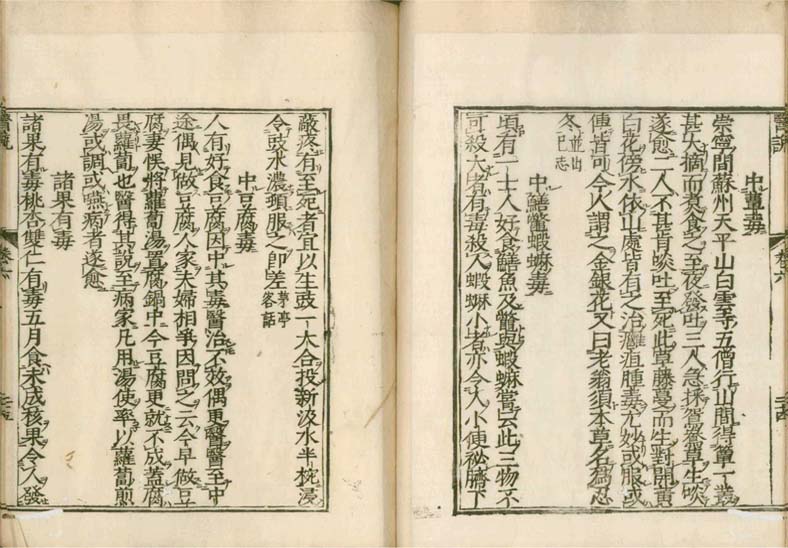 中蕈毒
崇寧間蘇州天平山白雲寺五僧行山間得蕈一叢
甚大摘而煮食之至夜發吐三人急採鴛鴦草生啖
遂愈二人不甚肯啖吐至死此草藤蔓而生對開黃
白花傍水依山處皆有之治癰疽腫毒尤妙或服或
傅皆可今人謂之金銀花又曰老翁須本草名為忍
冬並出已志
中鱔鱉蝦蟆毒
頃有一士人好食鱔魚及鱉與蝦蟆嘗云此三物不
可殺大者有毒殺人蝦蟆小者亦令人小便祕臍下
醫說
卷六
二十四
蔽疼有至死者宜以生豉一大合投新汲水半椀浸
令豉水濃頓服之卽差茅亭客話
中豆腐毒
人有好食豆腐因中其毒醫治不效偶更醫醫至中
途偶見做豆腐人家夫婦相爭因問之云今早做豆
腐妻悞將蘿蔔湯置腐鍋中今豆腐更就不成蓋腐
畏蘿蔔也醫得其說至病家凡用湯使率以蘿蔔煎
湯或調或嚥病者遂愈
諸果有毒
諸果有毒桃杏雙仁有毒五月食未成核果令人發
醫說
卷六
二十五